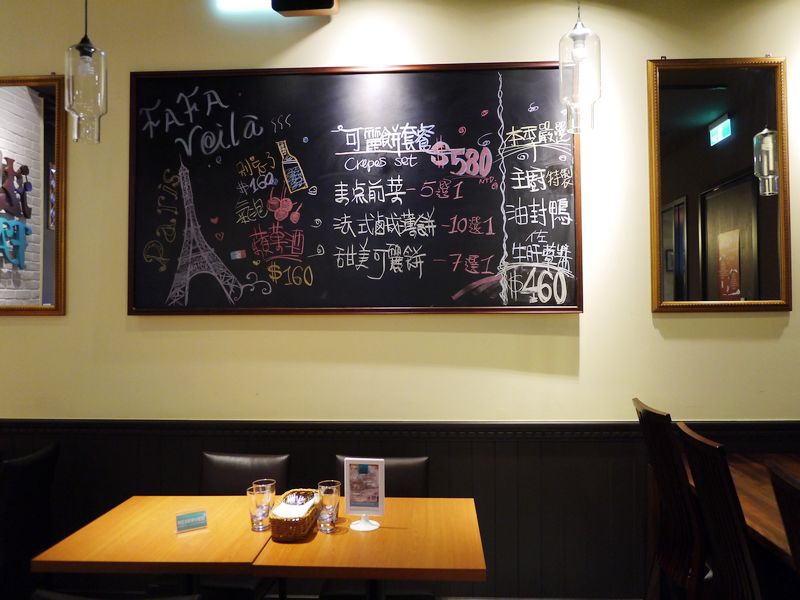 FAFA
Voilà
Paris
別忘了
$160
氣泡
蘋果酒
$160
可麗餅套餐
Crepes set $580
NTD.
主点前菜-5選1
法式鹹薄餅-10選1
甜美可麗餅-7選1
本季嚴選
主廚特製
油封鴨
佐
$460
RESERVED